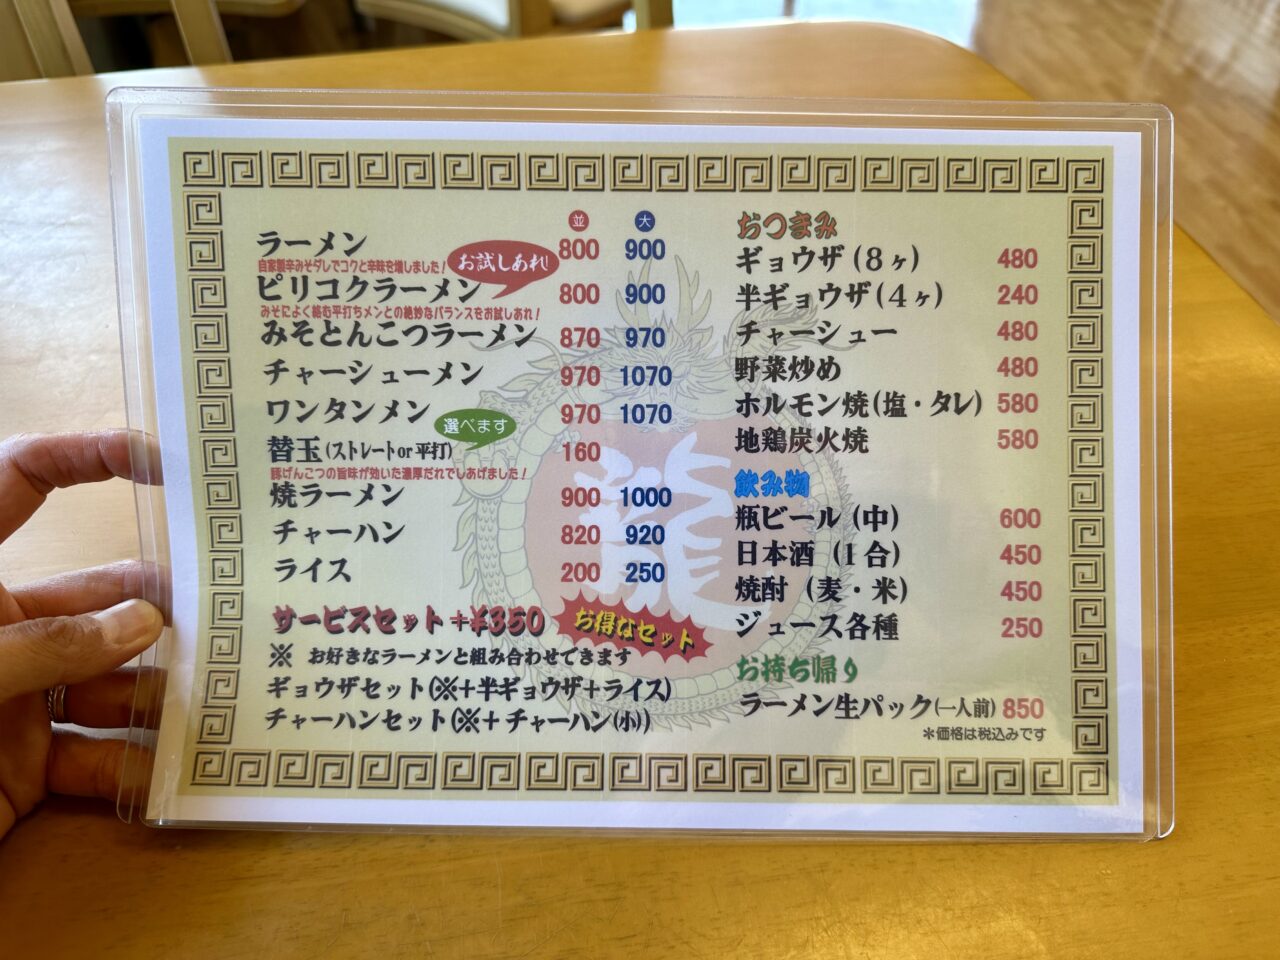 並 大
ラーメン 800 900
自家製辛みそダレでコクと辛味を増しました！
お試しあれ！
ピリコクラーメン 800 900
みそによく絡む平打ちメンとの絶妙なバランスをお試しあれ！
みそとんこつラーメン 870 970
チャーシューメン 970 1070
ワンタンメン 970 1070
選べます
替玉(ストレートor平打) 160
豚げんこつの旨味が効いた濃厚だれでしあげました！
焼ラーメン 900 1000
チャーハン 820 920
ライス 200 250
サービスセット+¥350 お得なセット
※ お好きなラーメンと組み合わせできます
ギョウザセット(※+半ギョウザ+ライス)
チャーハンセット(※+チャーハン(小))
龍
おつまみ
ギョウザ(8ヶ) 480
半ギョウザ(4ヶ) 240
チャーシュー 480
野菜炒め 480
ホルモン焼(塩・タレ) 580
地鶏炭火焼 580
飲み物
瓶ビール(中) 600
日本酒(1合) 450
焼酎(麦・米) 450
ジュース各種 250
お持ち帰り
ラーメン生パック(一人前) 850
＊価格は税込みです